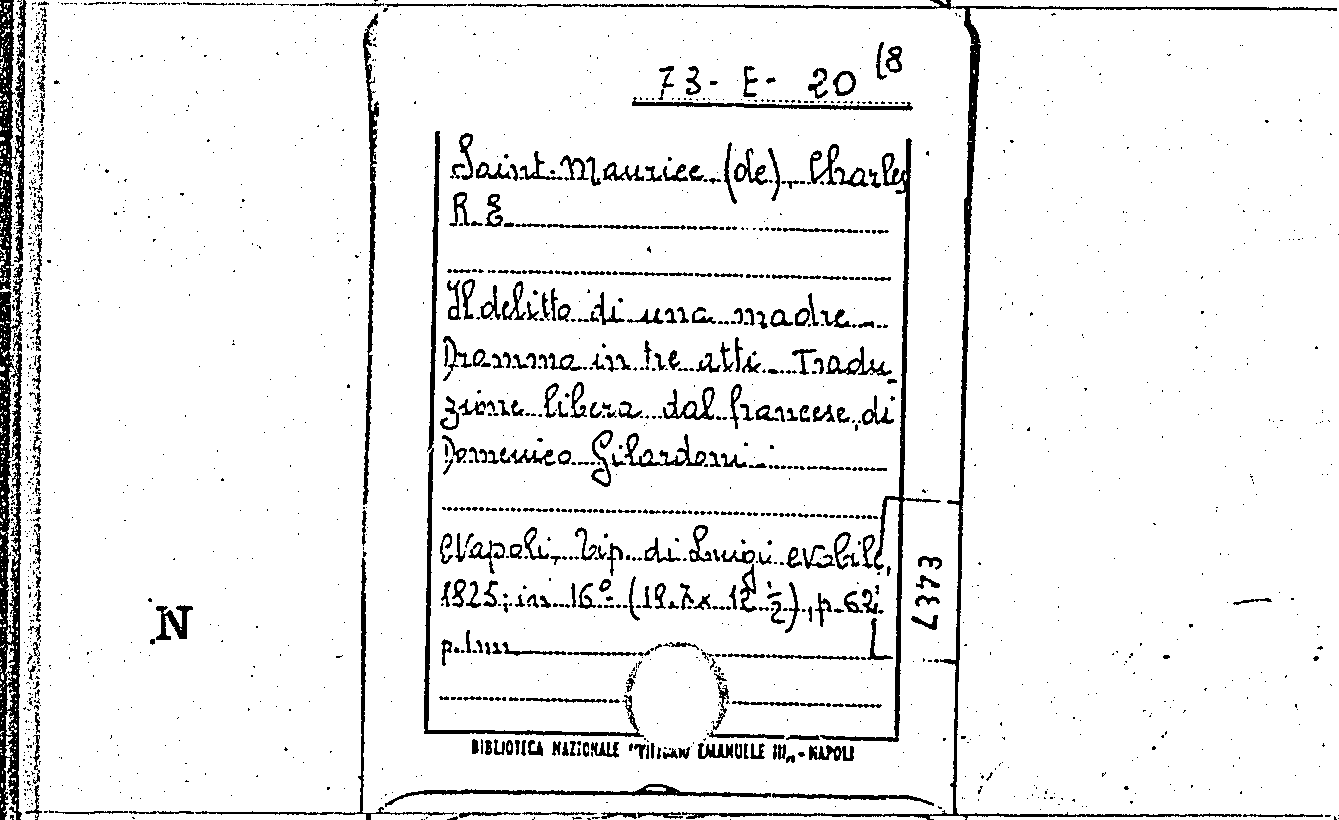 73-E-20 (8
Saint-Maurice (de), Charles
R. E.
Il delitto di una madre.
Dramma in tre atti. Tradu-
zione libera dal francese, di
Domenico Gilardoni.
Napoli, Tip. di Luigi Nobile,
1825; in 16º (19.7 x 12 ½), p. 62;
p. 1nn
4437
N
BIBLIOTECA NAZIONALE "VITTORIO EMANUELE III„ - NAPOLI